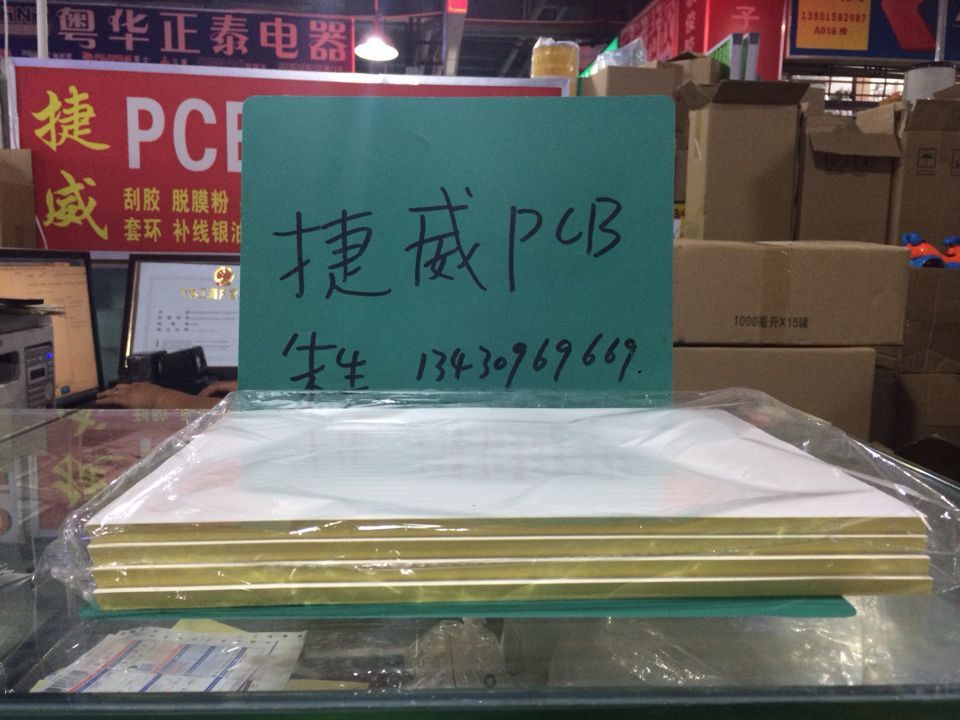 粤华正泰电器
捷威
PCB
刮胶 脱膜粉
套环 补线银油
捷威PCB
朱生 13430969669.
1000毫升X15罐
子
13501582987
A016